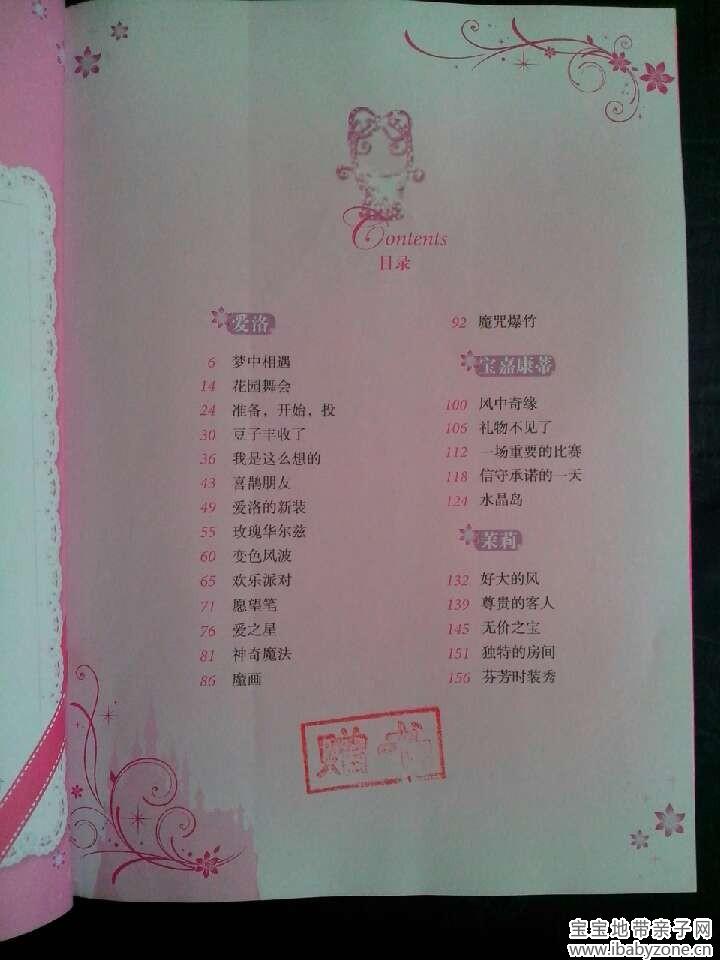 Contents
目录
爱洛
6 梦中相遇
14 花园舞会
24 准备，开始，投
30 豆子丰收了
36 我是这么想的
43 喜鹊朋友
49 爱洛的新装
55 玫瑰华尔兹
60 变色风波
65 欢乐派对
71 愿望笔
76 爱之星
81 神奇魔法
86 魔画
92 魔咒爆竹
宝嘉康蒂
100 风中奇缘
106 礼物不见了
112 一场重要的比赛
118 信守承诺的一天
124 水晶岛
茉莉
132 好大的风
139 尊贵的客人
145 无价之宝
151 独特的房间
156 芬芳时装秀
赠书
宝宝地带亲子网
www.ibabyzone.cn